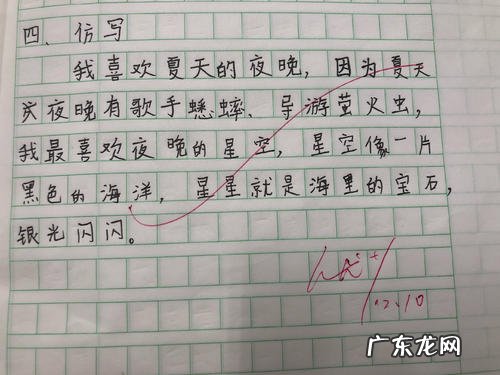 四、仿写
我喜欢夏天的夜晚，因为夏天
夜晚有歌手蟋蟀、导游萤火虫，
我最喜欢夜晚的星空，星空像一片
黑色的海洋，星星就是海里的宝石，
银光闪闪。
12.10
广东龙网